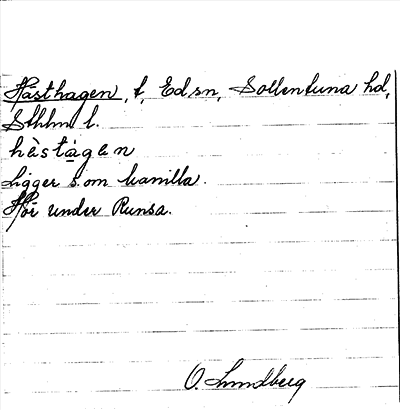 Hästhagen, t, Ed sn, Sollentuna hd,
Sthlm l.
hästàgen
Ligger som Kanilla.
Hör under Runsa.
O. Lundberg